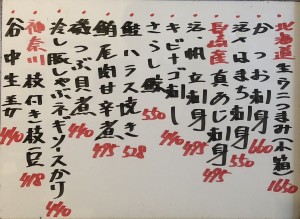 北海道 生うにつまみ(小箱) 1650
かつお刺身 660
活はまち刺身 550
長崎産 真あじ刺身 495
活帆立刺身 495
キビナゴ刺し 440
さらし鯨 550
鮭ハラス焼き 528
鮪尾肉甘辛煮 495
磯つぶ貝煮 440
冷し豚しゃぶネギソースがけ 440
神奈川 枝付き枝豆 418
谷中生姜 440